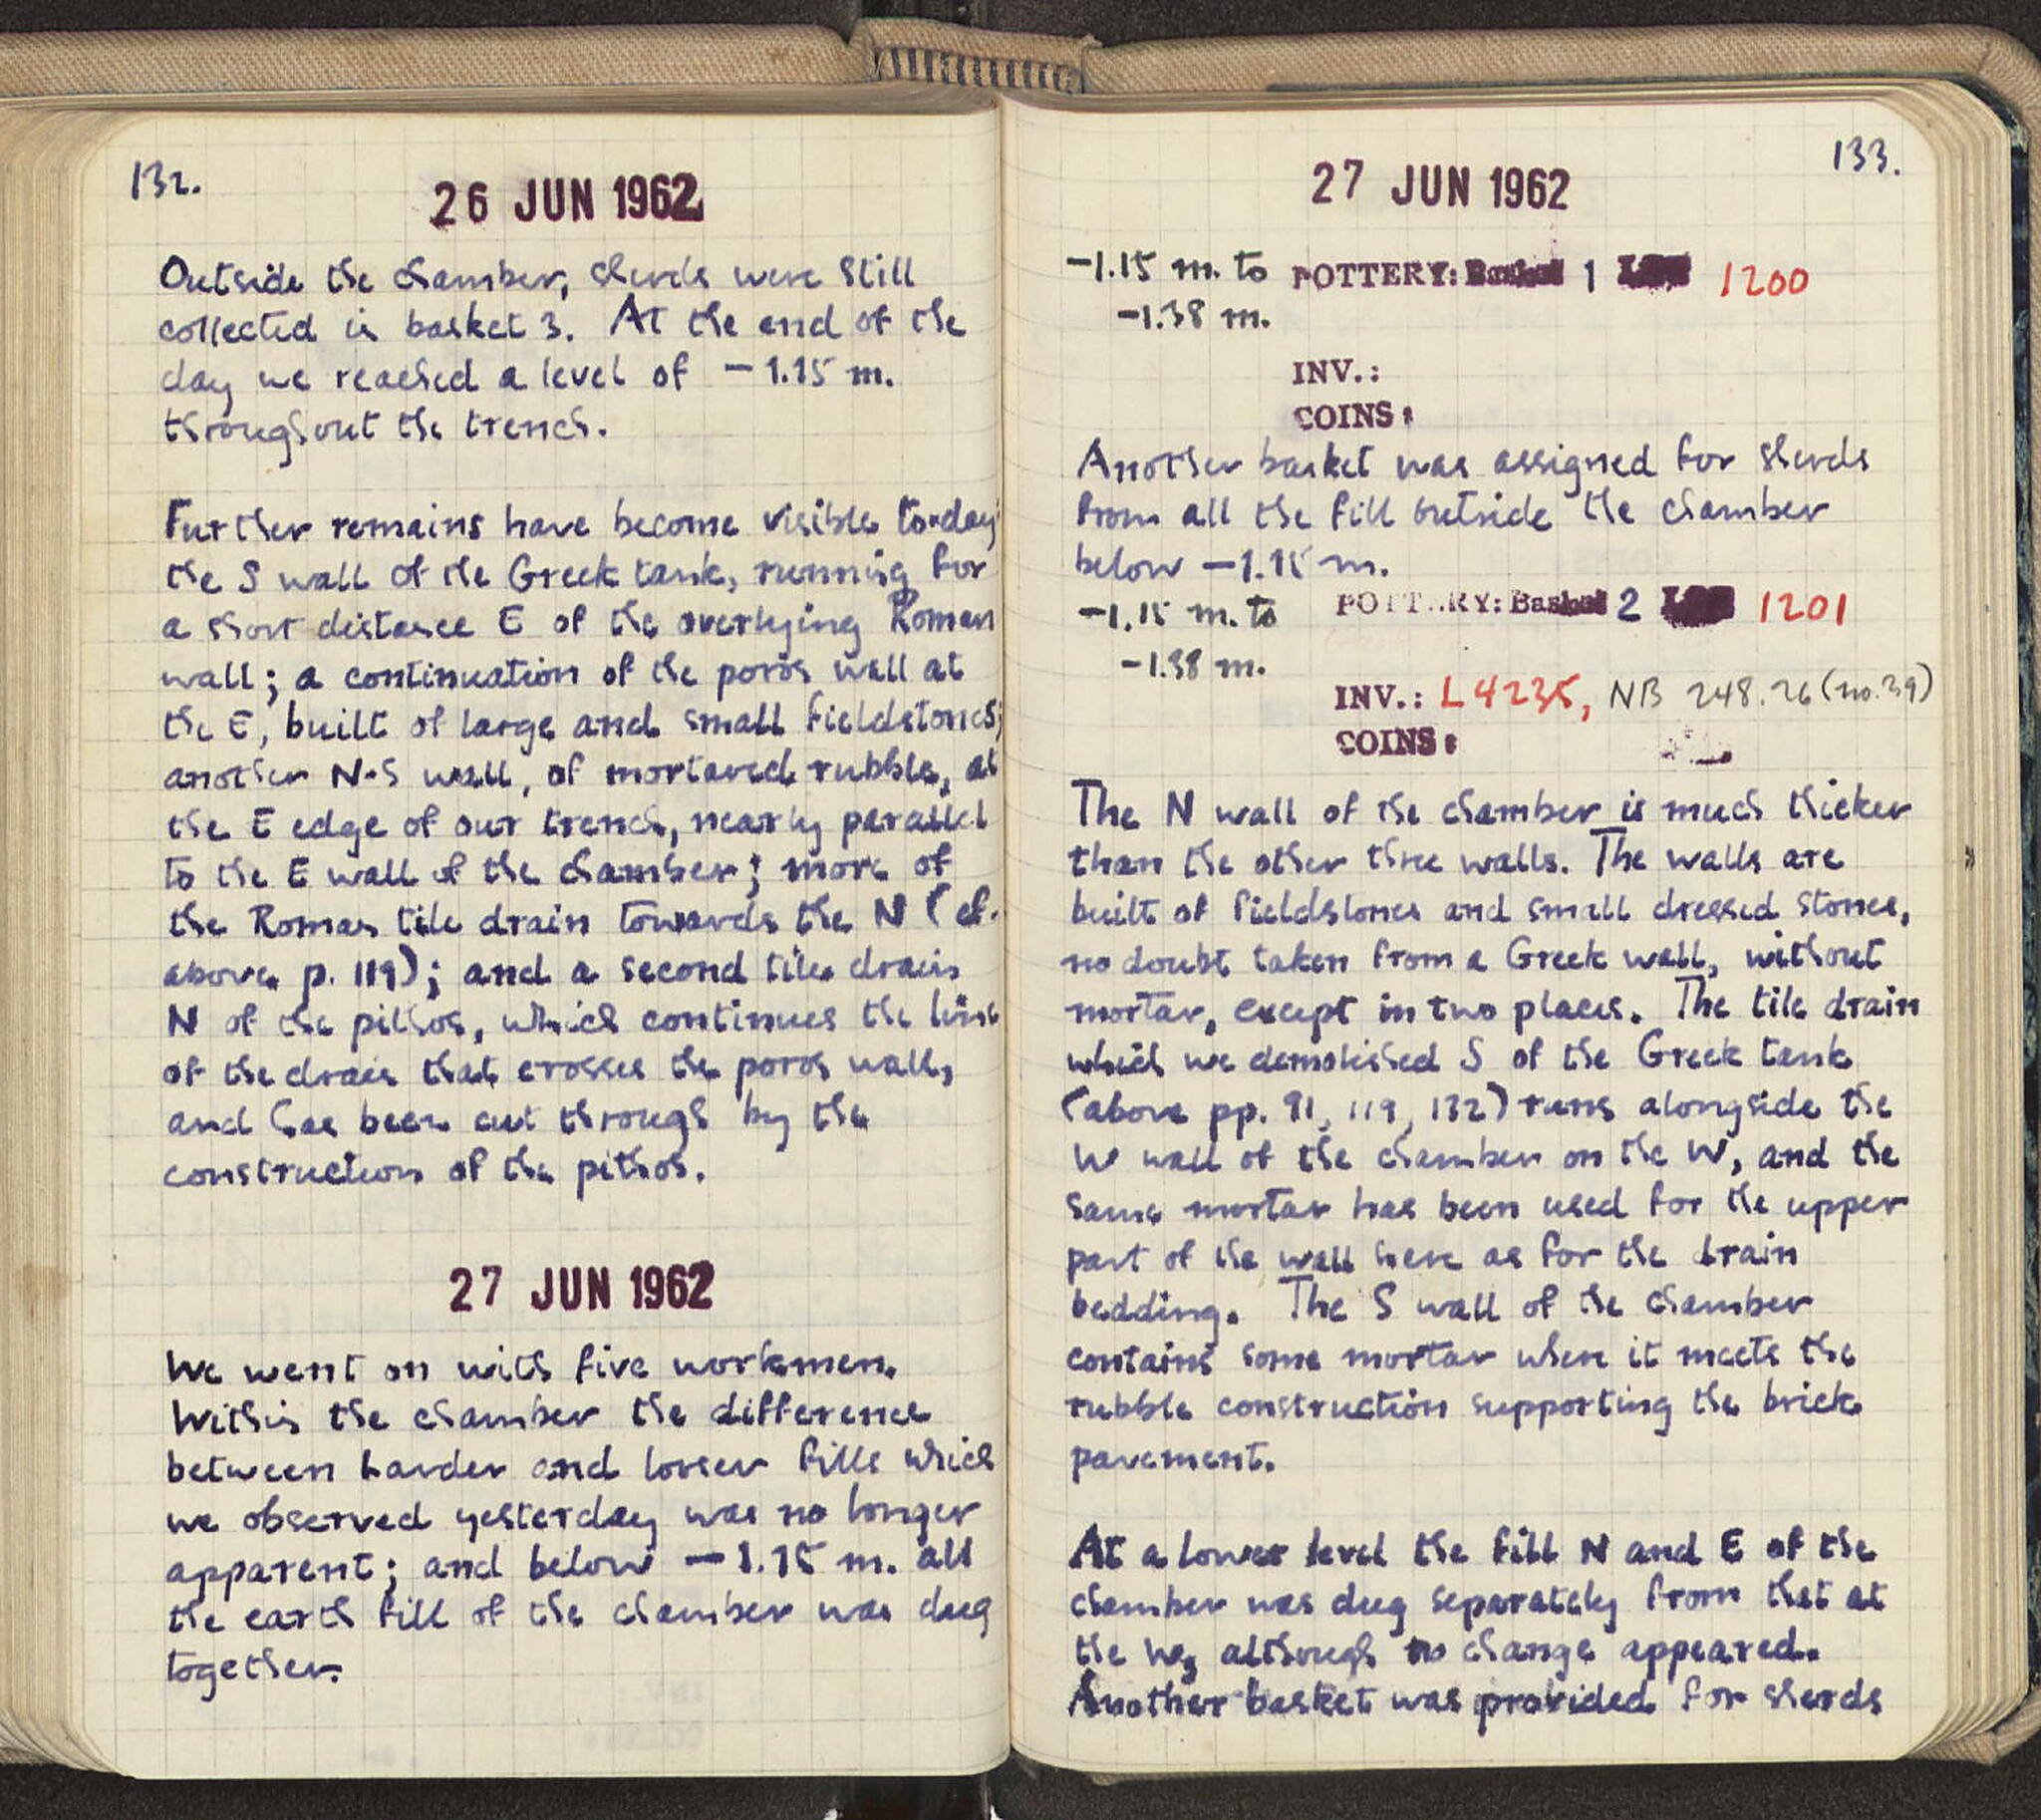 132.
26 JUN 1962
Outside the chamber, sherds were still
collected in basket 3. At the end of the
day we reached a level of -1.15 m.
throughout the trench.
Further remains have become visible to-day:
the S wall of the Greek tank, running for
a short distance E of the overlying Roman
wall; a continuation of the poros wall at
the E, built of large and small fieldstones;
another N-S wall, of mortared rubble, at
the E edge of our trench, nearly parallel
to the E wall of the chamber; more of
the Roman tile drain towards the N (cf.
above p. 119); and a second tile drain
N of the pithos, which continues the line
of the drain that crosses the poros wall,
and has been cut through by the
construction of the pithos.
27 JUN 1962
We went on with five workmen.
Within the chamber the difference
between harder and looser fills which
we observed yesterday was no longer
apparent; and below -1.15 m. all
the earth fill of the chamber was dug
together.
133.
27 JUN 1962
-1.15 m. to POTTERY: Basket 1 1200
-1.38 m.
INV.:
COINS:
Another basket was assigned for sherds
from all the fill outside the chamber
below -1.15 m.
-1.15 m. to POTTERY: Basket 2 1201
-1.38 m.
INV.: L4235, NB 248.26 (no.39)
COINS:
The N wall of the chamber is much thicker
than the other three walls. The walls are
built of fieldstones and small dressed stones,
no doubt taken from a Greek wall, without
mortar, except in two places. The tile drain
which we demolished S of the Greek tank
(above pp. 91, 119, 132) runs alongside the
W wall of the chamber on the W, and the
same mortar has been used for the upper
part of the wall here as for the drain
bedding. The S wall of the chamber
contains some mortar where it meets the
rubble construction supporting the brick
pavement.
At a lower level the fill N and E of the
chamber was dug separately from that at
the W, although no change appeared.
Another basket was provided for sherds